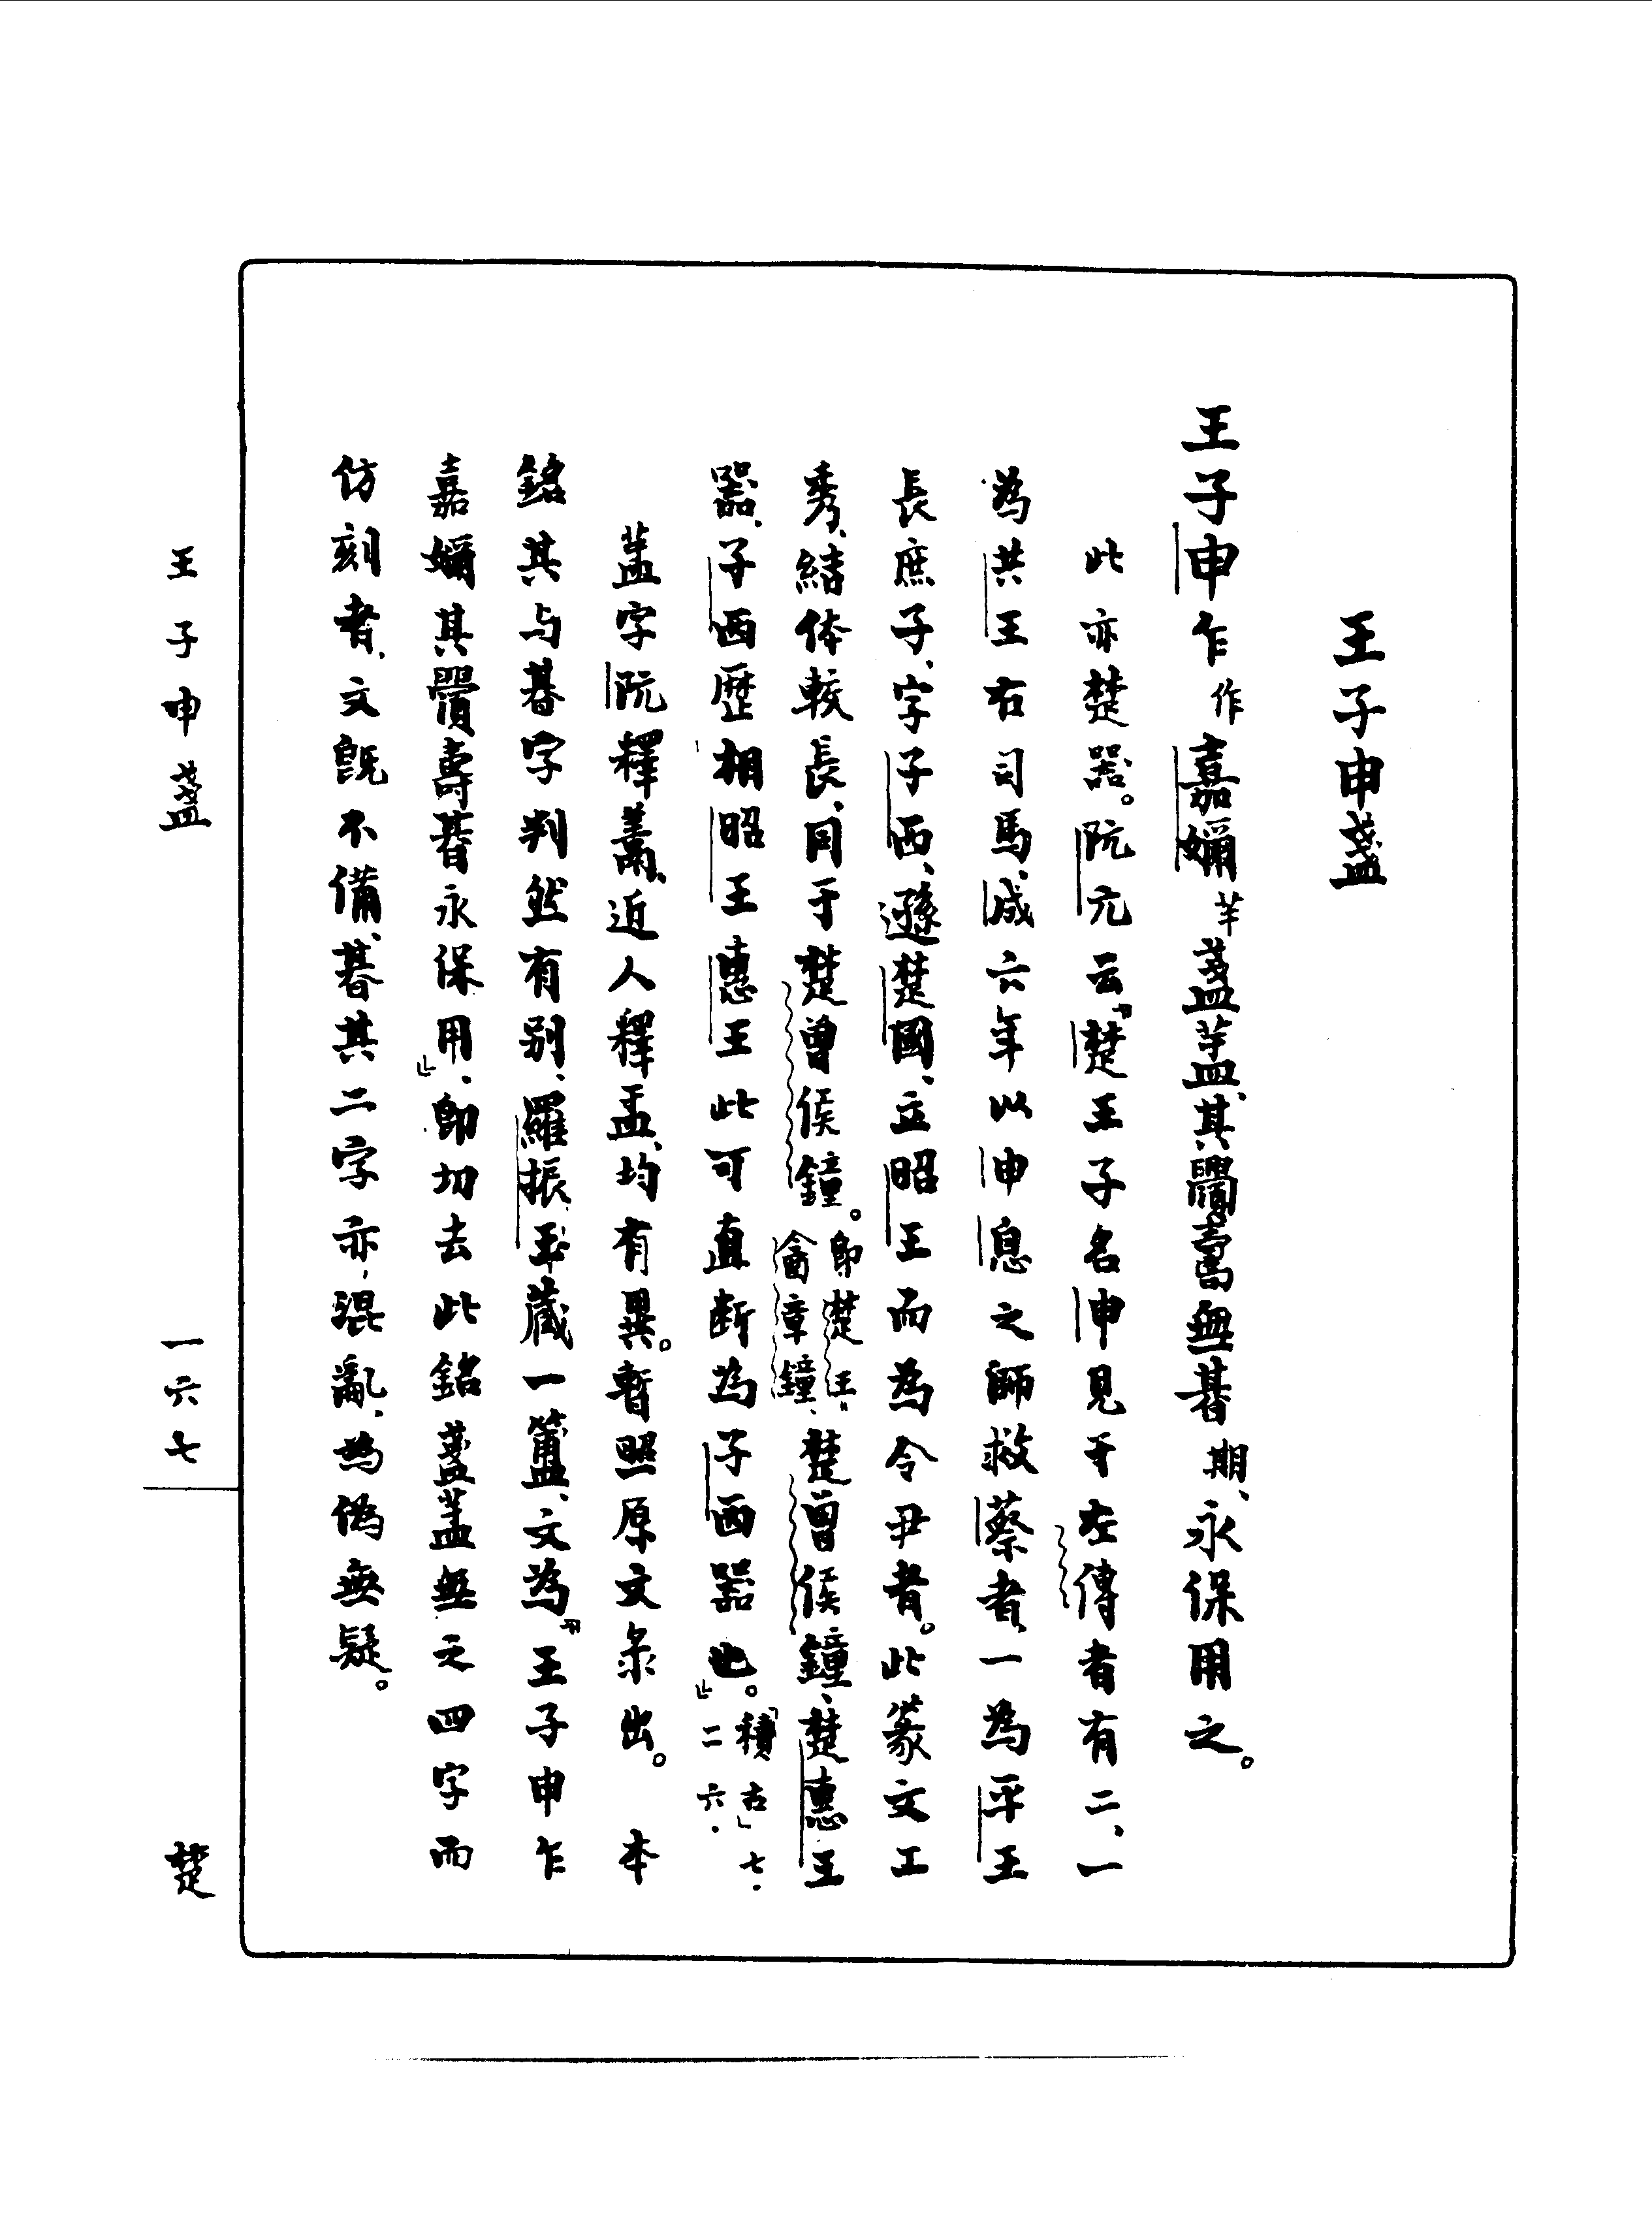 王子申盞
王子申乍作嘉嬭芈盞盖、其眉壽無朞期、永保用之。
此亦楚器。阮元云『楚王子名申見于左傳者有二、一
為共王右司馬、成六年以申息之師救蔡者、一為平王
長庶子、字子西、遜楚國、立昭王而為令尹者。此篆文工
秀、結体較長、同于楚曾侯鐘。即楚王酓章鐘、楚曾侯鐘、楚惠王
器、子西歷相昭王惠王此可直断為子西器也。』「積古」七·二六·
盖字阮釋，近人釋盂、均有異。暫照原文彔出。本
銘其与朞字判然有别、羅振玉藏一簠、文為『王子申乍
嘉嬭其眉壽朞永保用』、即切去此銘盞盖無之四字而
仿刻者、文既不備、朞其二字亦混亂、為偽無疑。
王子申盞 一六七 楚